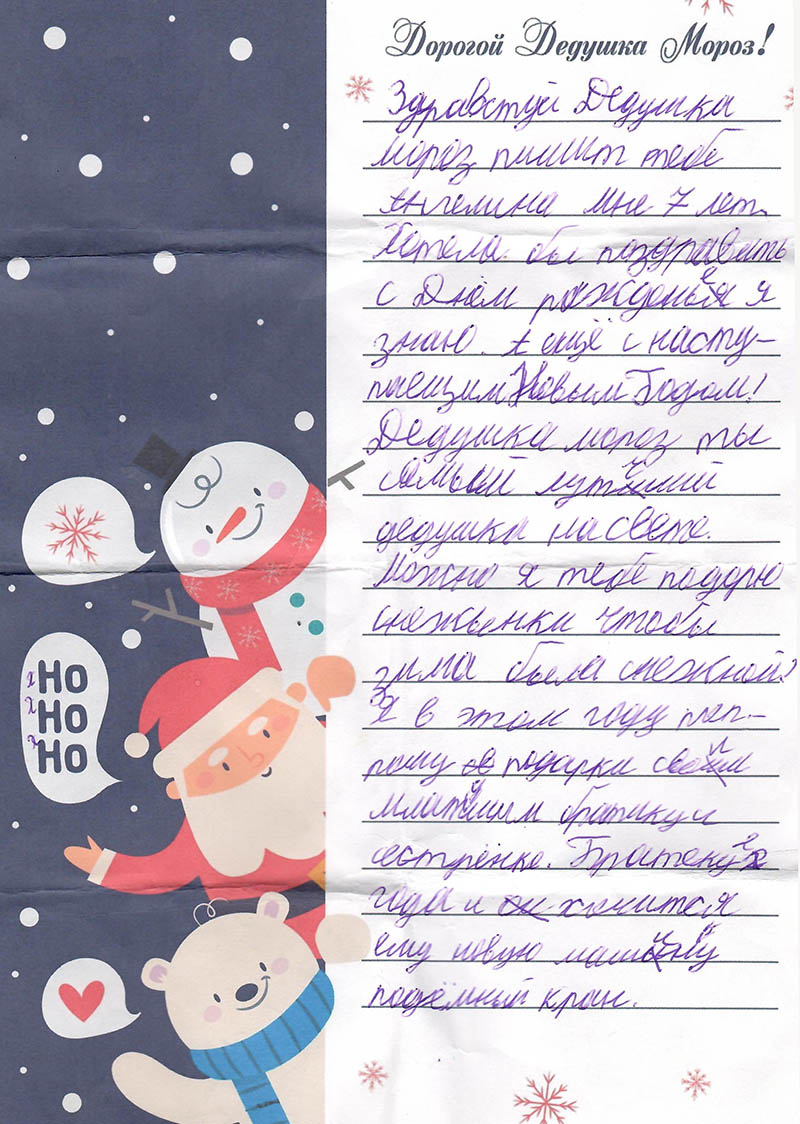 Дорогой Дедушка Мороз!
Здравствуй Дедушка
мороз пишит тебе
Ангелина мне 7 лет.
Хотела бы поздравить
с Днём рожденья я
знаю. А ещё с насту-
пающим Новым Годом!
Дедушка мороз ты
самый лутчший
дедушка на свете.
Можно я тебе подарю
снежынки чтобы
зима была снежной?
Я в этом году поп-
рошу подарки своим
младшим братику и
сестрёнке. Братику 2
года и хочится
ему новую машину
подёмный кран.
хHO
хHO
хHO